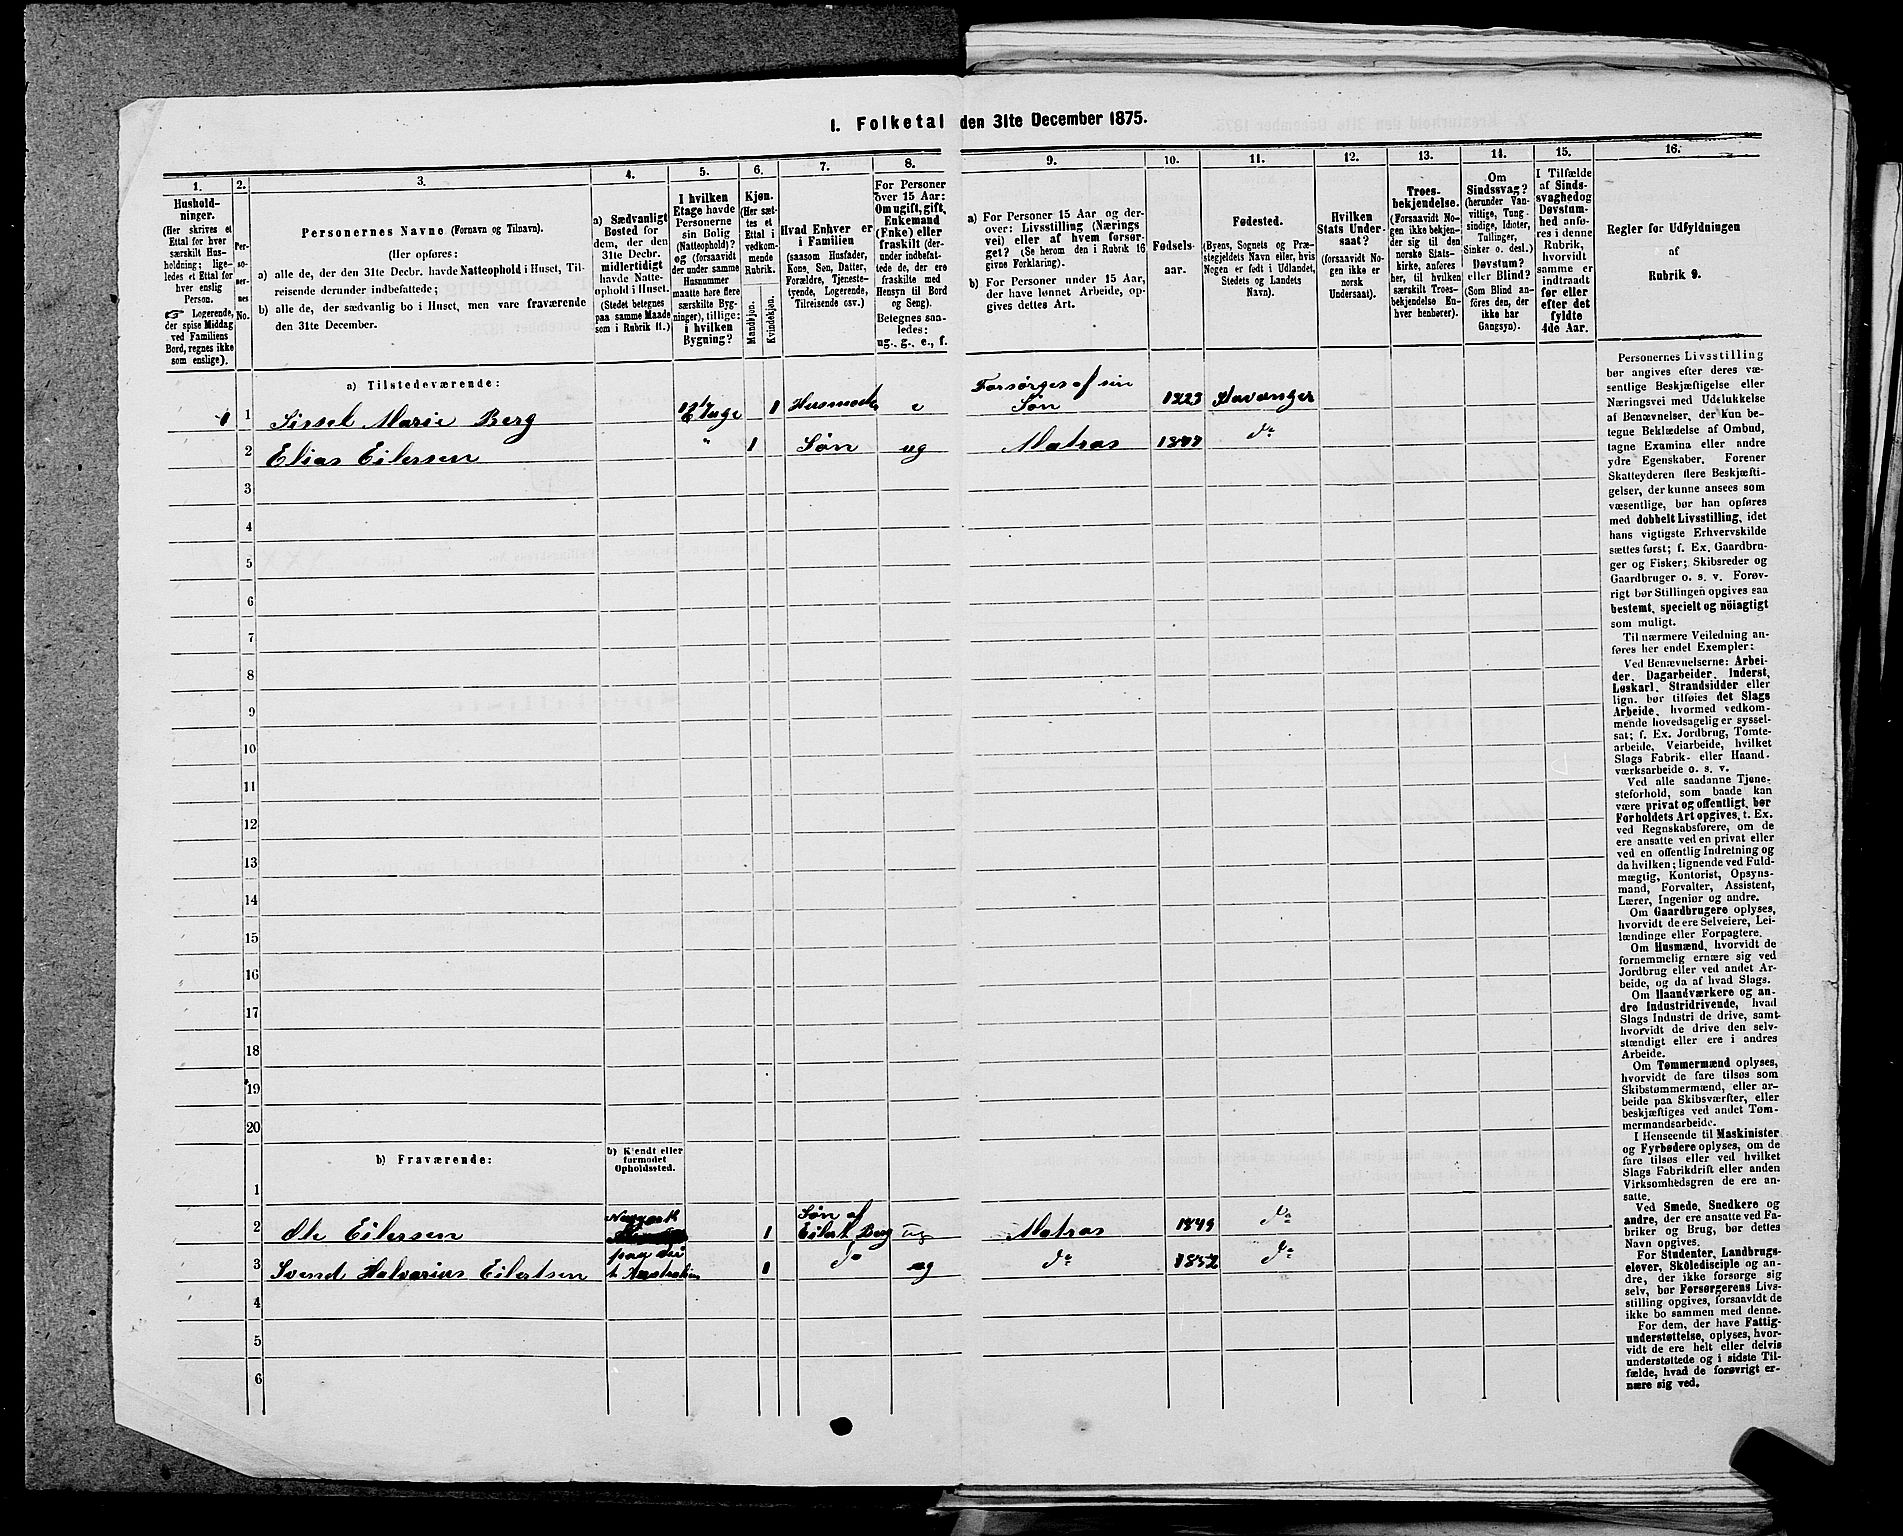 1. Folketal den 31te December 1875.
1.
2.
3.
4.
5.
6.
7.
8.
9.
10.
11.
12.
13.
14.
15.
16.
Hushold-
ninger.
(Her skrives et
Ettal for hver
særskilt Hus-
holdning; lige-
ledes et Ettal for
hver enslig
Person.
☞ Logerende,
der spise Middag
ved Familiens
Bord, regnes ikke
som enslige).
Per-
so-
ner-
nes
No.
Personernes Navne (Fornavn og Tilnavn).
(Her opføres:
a) alle de, der den 31te Decbr. havde Natteophold i Huset, Til-
reisende derunder indbefattede;
b) alle de, der sædvanlig bo i Huset, men vare fraværende
den 31te December.
a) Sædvanligt
Bosted for
dem, der den
31te Decbr.
midlertidigt
havde Natte-
ophold i Huset.
(Stedet betegnes
paa samme Maade
som i Rubrik 11.)
I hvilken
Etage havde
Personerne
sin Bolig
(Natteophold)?
og (forsaavidt
der under samme
Husnummer
maatte høre flere
særskilte Byg-
ninger), tillige:
i hvilken
Bygning?
Kjøn.
(Her sæt-
tes et
Ettal i
vedkom-
mende
Rubrik.
Mandkjøn.
Kvindekjøn.
Hvad Enhver er
i Familien
(saasom Husfader,
Kone, Søn, Datter,
Forældre, Tjeneste-
tyende, Logerende,
Tilreisende osv.)
For Personer
over 15 Aar:
Om ugift, gift,
Enkemand
(Enke) eller
fraskilt (der-
under indbefat-
tede de, der ere
fraskilte med
Hensyn til Bord
og Seng).
Betegnes saa-
ledes:
ug., g., e., f.
a) For Personer 15 Aar og der-
over: Livsstilling (Nærings
vei) eller af hvem forsør-
get? (Se herom den i Rubrik 16
givne Forklaring).
b) For Personer under 15 Aar,
der have lønnet Arbeide, op-
gives dettes Art.
Fødsels-
aar.
Fødested.
(Byens, Sognets og Præ-
stegjeldets Navn eller, hvis
Nogen er født i Udlandet,
Stedets og Landets
Navn).
Hvilken
Stats Under-
saat?
(forsaavidt No-
gen ikke er
norsk
Undersaat).
Troes-
bekjendelse.
(Forsaavidt No-
gen ikke bekjen-
der sig til den
norske Stats-
kirke, anføres
her, til hvilken
særskilt Troes-
bekjendelse En-
hver henhører).
Om
Sindssvag?
(herunder Van-
vittige, Tung-
sindige, Idioter,
Tullinger,
Sinker o. desl.)
Døvstum?
eller Blind?
(Som Blind an-
føres den, der
ikke har
Gangsyn).
I Tilfælde
af Sinds-
svaghed og
Døvstum-
hed anfø-
res i denne
Rubrik,
hvorvidt
samme er
indtraadt
før eller
efter det
fyldte
4de Aar.
Regler for Udfyldningen
af
Rubrik 9.
a) Tilstedeværende:
1 1 Sissel Marie Berg Etage 1 Husmoder e Forsørges af sin
Søn 1823 Stavanger
2 Elias Eilersen " 1 Søn ug Matros 1847 do
3
4
5
6
7
8
9
10
11
12
13
14
15
16
17
18
19
20
b) Fraværende:
b) Kjendt eller
formodet
Opholdssted.
1
2 Ole Eilersen 1 Søn af
Eilert Berg ug Matros 1849 do
3 Svend Halvarius Eilertsen Australien 1 do ug do 1852 do
4
5
6
Personernes Livsstilling
bør angives efter deres væ-
sentlige Beskjæftigelse eller
Næringsvei med Udelukkelse
af Benævnelser, der kun be-
tegne Beklædelse af Ombud,
tagne Examina eller andre
ydre Egenskaber. Forener
Skatteyderen flere Beskjæfti-
gelser, der kunne ansees som
væsentlige, bør han opføres
med dobbelt Livsstilling, idet
hans vigtigste Erhvervskilde
sættes først; f. Ex. Gaardbru-
ger og Fisker; Skibsreder og
Gaardbruger o. s. v. Forøv-
rigt bør Stillingen opgives saa
bestemt, specielt og nöiagtigt
som muligt.
Til nærmere Veiledning an-
føres her endel Exempler:
Ved Benævnelserne: Arbei-
der, Dagarbeider, Inderst,
Løskarl, Strandsidder eller
lign. bør tilføies det Slags
Arbeide, hvormed vedkom-
mende hovedsagelig er syssel-
sat; f. Ex. Jordbrug, Tomte-
arbeide, Veiarbeide, hvilket
Slags Fabrik- eller Haand-
værksarbeide o. s. v.
Ved alle saadanne Tjene-
steforhold, som baade kan
være privat og offentligt, bør
Forholdets Art opgives, t. Ex.
ved Regnskabsførere, om de
ere ansatte ved en privat eller
ved en offentlig Indretning og
da hvilken; lignende ved Fuld-
mægtig, Kontorist, Opsyns-
mand, Forvalter, Assistent,
Lærer, Ingeniør og andre.
Om Gaardbrugere oplyses,
hvorvidt de ere Selveiere, Lei-
lændinge eller Forpagtere.
Om Husmænd, hvorvidt de
fornemmelig ernære sig ved
Jordbrug eller ved andet Ar-
beide, og da af hvad Slags.
Om Haandværkere og an-
dre Industridrivende, hvad
Slags Industri de drive, samt
hvorvidt de drive den selv-
stændigt eller ere i andres
Arbeide.
Om Tømmermænd oplyses,
hvorvidt de fare tilsøs som
Skibstømmermænd, eller ar-
beide paa Skibsværfter, eller
beskjæftiges ved andet Tøm-
mermandsarbeide.
I Henseende til Maskinister
og Fyrbødere oplyses, om de
fare tilsøs eller ved hvilket
Slags Fabrikdrift eller anden
Virksomhedsgren de ere an-
satte.
Ved Smede, Snedkere og
andre, der ere ansatte ved Fa-
briker og Brug, bør dettes
Navn opgives.
For Studenter, Landbrugs-
elever, Skoledisciple og an-
dre, der ikke forsørge sig
selv, bør Forsørgerens Livs-
stilling opgives, forsaavidt de
ikke bo sammen med denne.
For dem, der have Fattig-
understøttelse, oplyses, hvor-
vidt de ere helt eller delvis
understøttede og i sidste Til-
fælde, hvad de forøvrigt er-
nære sig ved.